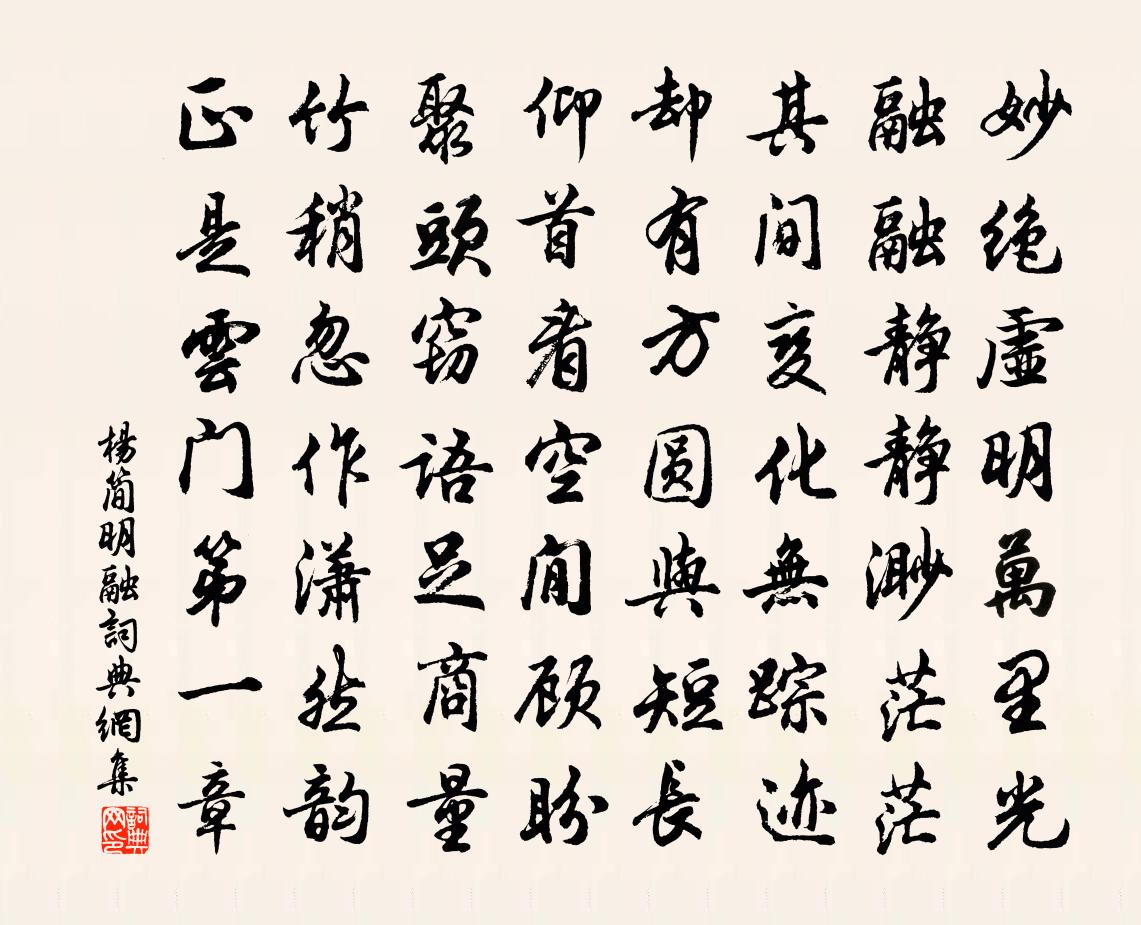 妙绝虚明萬里光
融融静静渺茫茫
其间变化無踪迹
却有方圆與短長
仰首看空闲顾盼
聚頭窃語足商量
竹稍忽作潇然韵
正是雲门第一章
楊简明融詞典網集
詞典网印